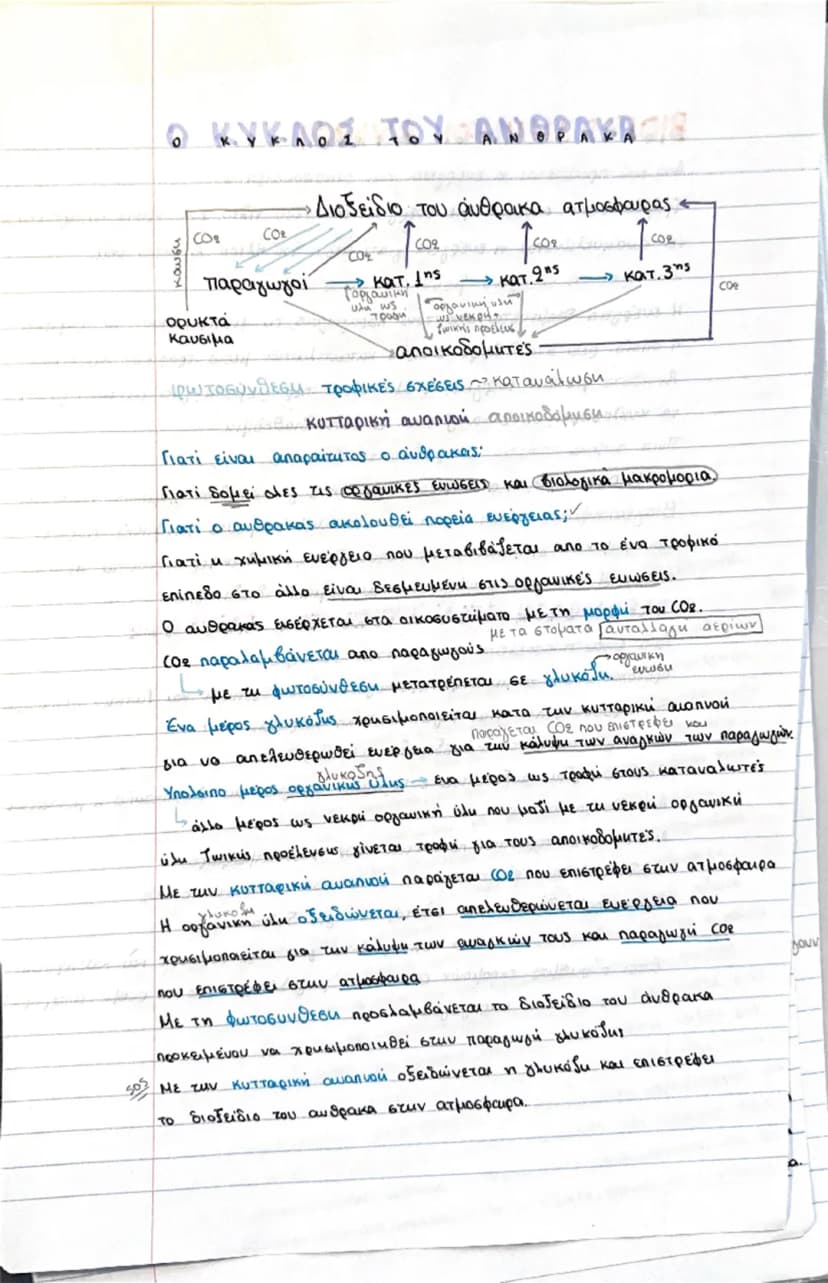 Ο ΚΥΚΛΟΣ ΤΟΥ ΑΝΘΡΑΚΑ
Διοξείδιο του άνθρακα ατμοσφαιρας
καυση
CO2 CO2 CO2 CO2 CO2 CO2
παραγωγοί → κατ. 1ης → κατ. 2ης → κατ. 3ης
CO2
οργανική υλη ως τροφη
οργανική υλη ως νεκρη + ζωικής προέλευς
ορυκτά καυσιμα
αποικοδομητές
φωτοσύνθεση τροφικές σχέσεις ~ κατανάλωση
κυτταρική αναπνοή αποικοδόμηση
Γιατί είναι απαραίτητος ο άνθρακας;
Γιατί δομεί ολες τις οργανικές ενώσεις και βιολογικά μακρομορια
Γιατί ο ανθρακας ακολουθεί πορεία ενέργειας; ✓
Γιατί η χημική ενέργεια που μεταβιβάζεται απο το ένα τροφικό
επίπεδο στο άλλο είναι δεσμευμένη στις οργανικές ενωσεις.
Ο ανθρακας εισέρχεται στα οικοσυστήματα με τη μορφή του CO2.
με τα στοματα ανταλλαγη αερίων
CO2 παραλαμβάνεται απο παραγωγούς
οργανικη ενωση
με τη φωτοσύνθεση μετατρέπεται σε γλυκόζη.
Ένα μέρος γλυκόζης χρησιμοποιείται κατα την κυτταρική αναπνοή
παράγεται CO2 που επιστρέφει και
για να απελευθερωθεί ενέργεια για την κάλυψη των αναγκών των παραγωγών.
γλυκοζης
Υπολοιπο μέρος οργανικης υλης → ένα μέρος ως τροφή στους καταναλωτές
άλλο μέρος ως νεκρή οργανική ύλη που μαζί με τη νεκρή οργανική
ύλη ζωικής προέλευσης γίνεται τροφή για τους αποικοδομητές.
Με την κυτταρική αναπνοή παράγεται CO2 που επιστρέφει στην ατμοσφαιρα
γλυκοζη
Η οργανικη ύλη οξειδώνεται, έτσι απελευθερώνεται ενέργεια που
χρησιμοποιείται για την κάλυψη των αναγκών τους και παραγωγή CO2
που επιστρέφει στην ατμόσφαιρα
Με τη φωτοσυνθεση προσλαμβάνεται το διοξείδιο του άνθρακα
προκειμένου να χρησιμοποιηθεί στην παραγωγή γλυκόζης
sos Με την κυτταρική αναπνοή οξειδώνεται η γλυκόζη και επιστρέφει
το διοξείδιο του ανθρακα στην ατμόσφαιρα.